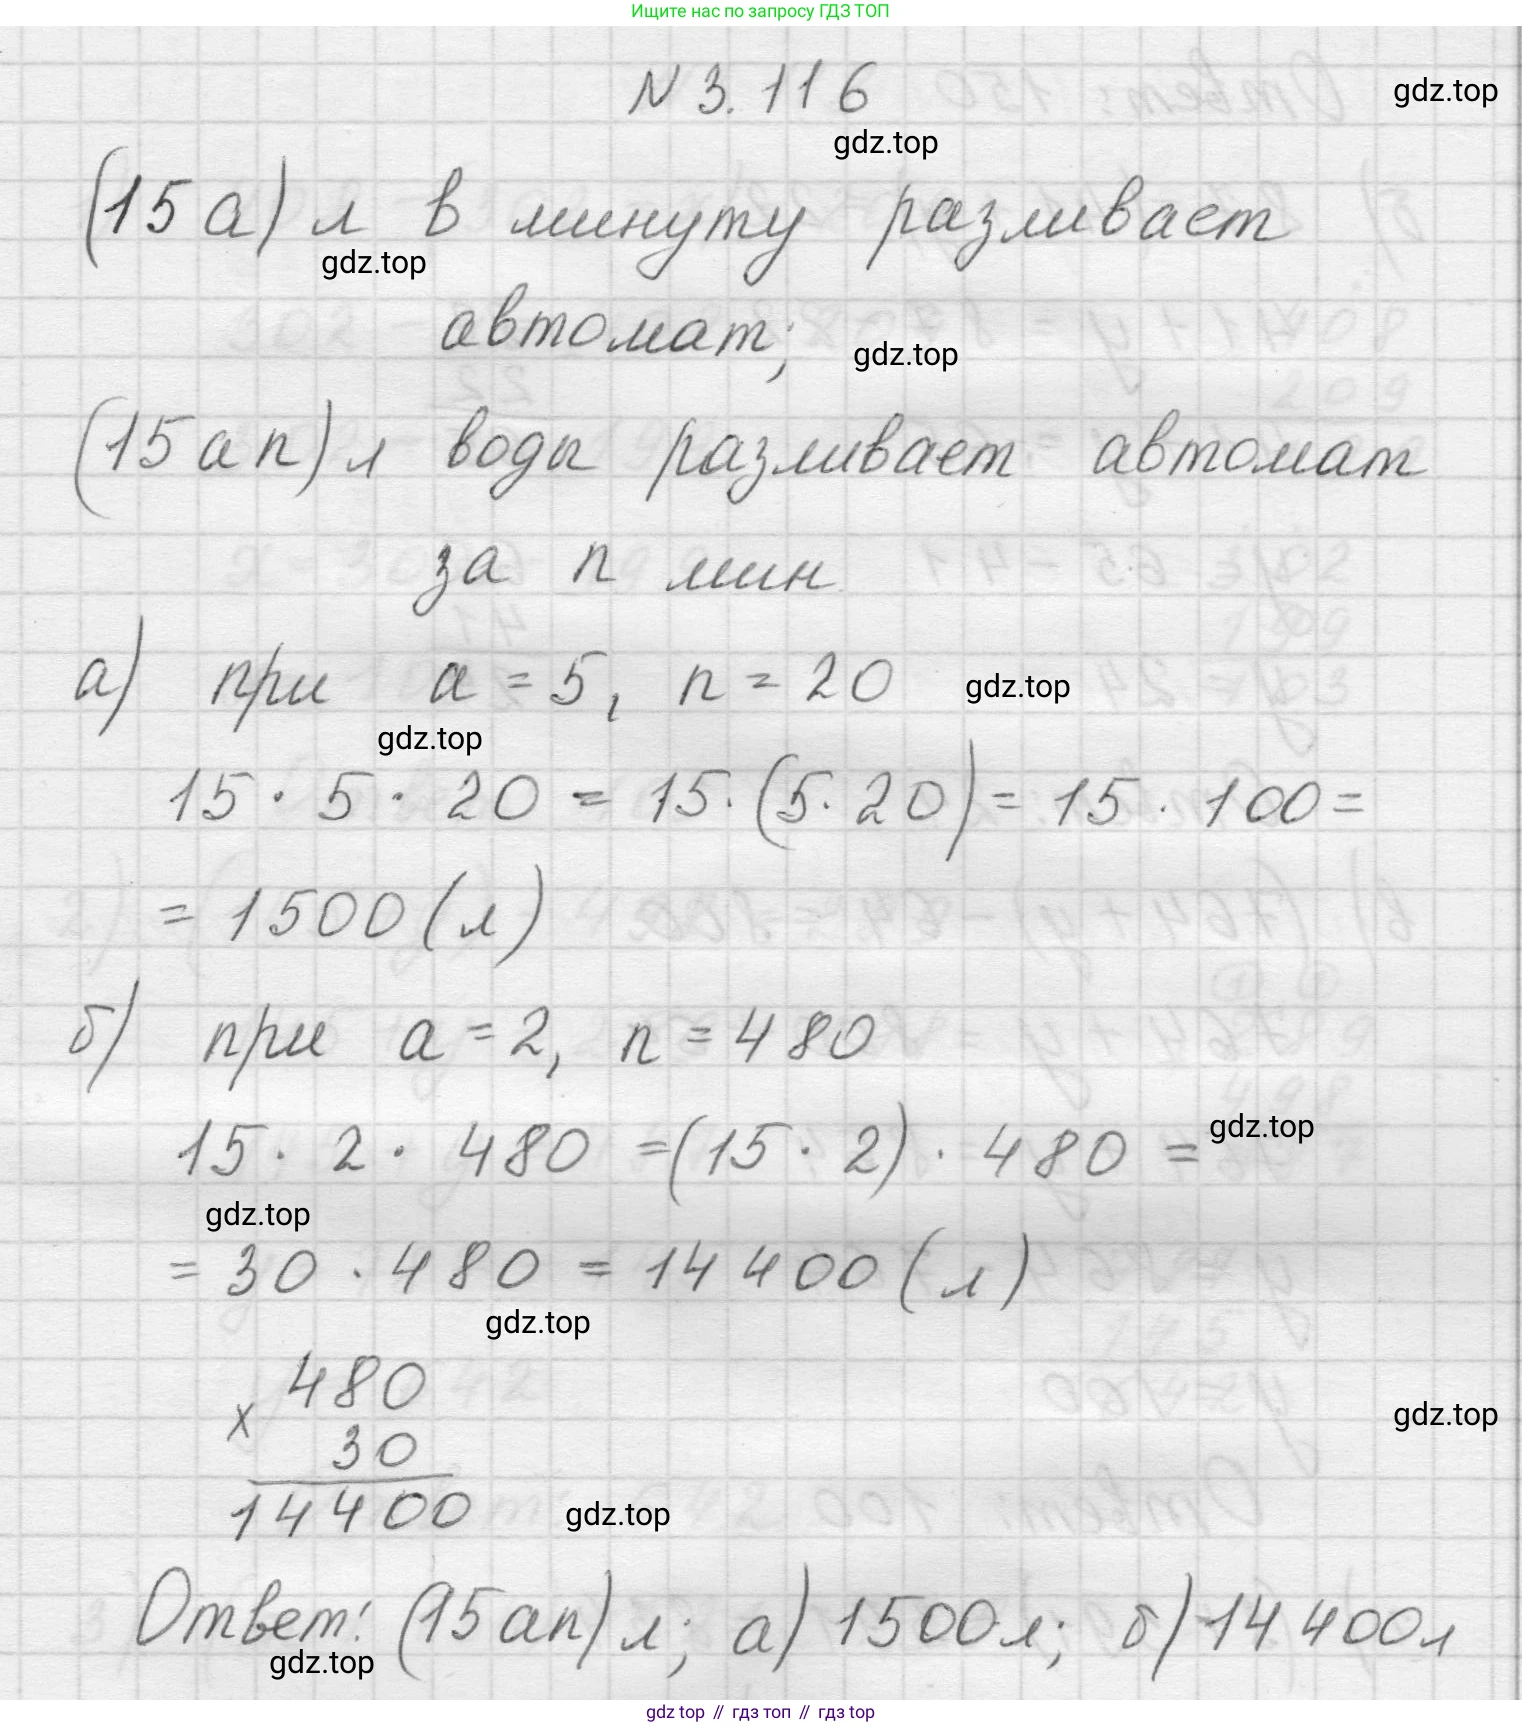 Ищите нас по запросу ГДЗ ТОП
N 3.116
gdz.top
gdz.top
(15а) л в минуту разливает
gdz.top
автомат;
gdz.top
(15an) л воды разливает автомат
за n мин
а) при a = 5, n = 20
gdz.top
gdz.top
15 · 5 · 20 = 15 · (5 · 20) = 15 · 100 =
= 1500 (л)
б) при a = 2, n = 480
15 · 2 · 480 = (15 · 2) · 480 =
gdz.top
gdz.top
= 30 · 480 = 14 400 (л)
gdz.top
480
x
30
14400
gdz.top
gdz.top
Ответ: (15an) л; а) 1500 л; б) 14 400 л
gdz.top
gdz top // гдз топ // гдз top